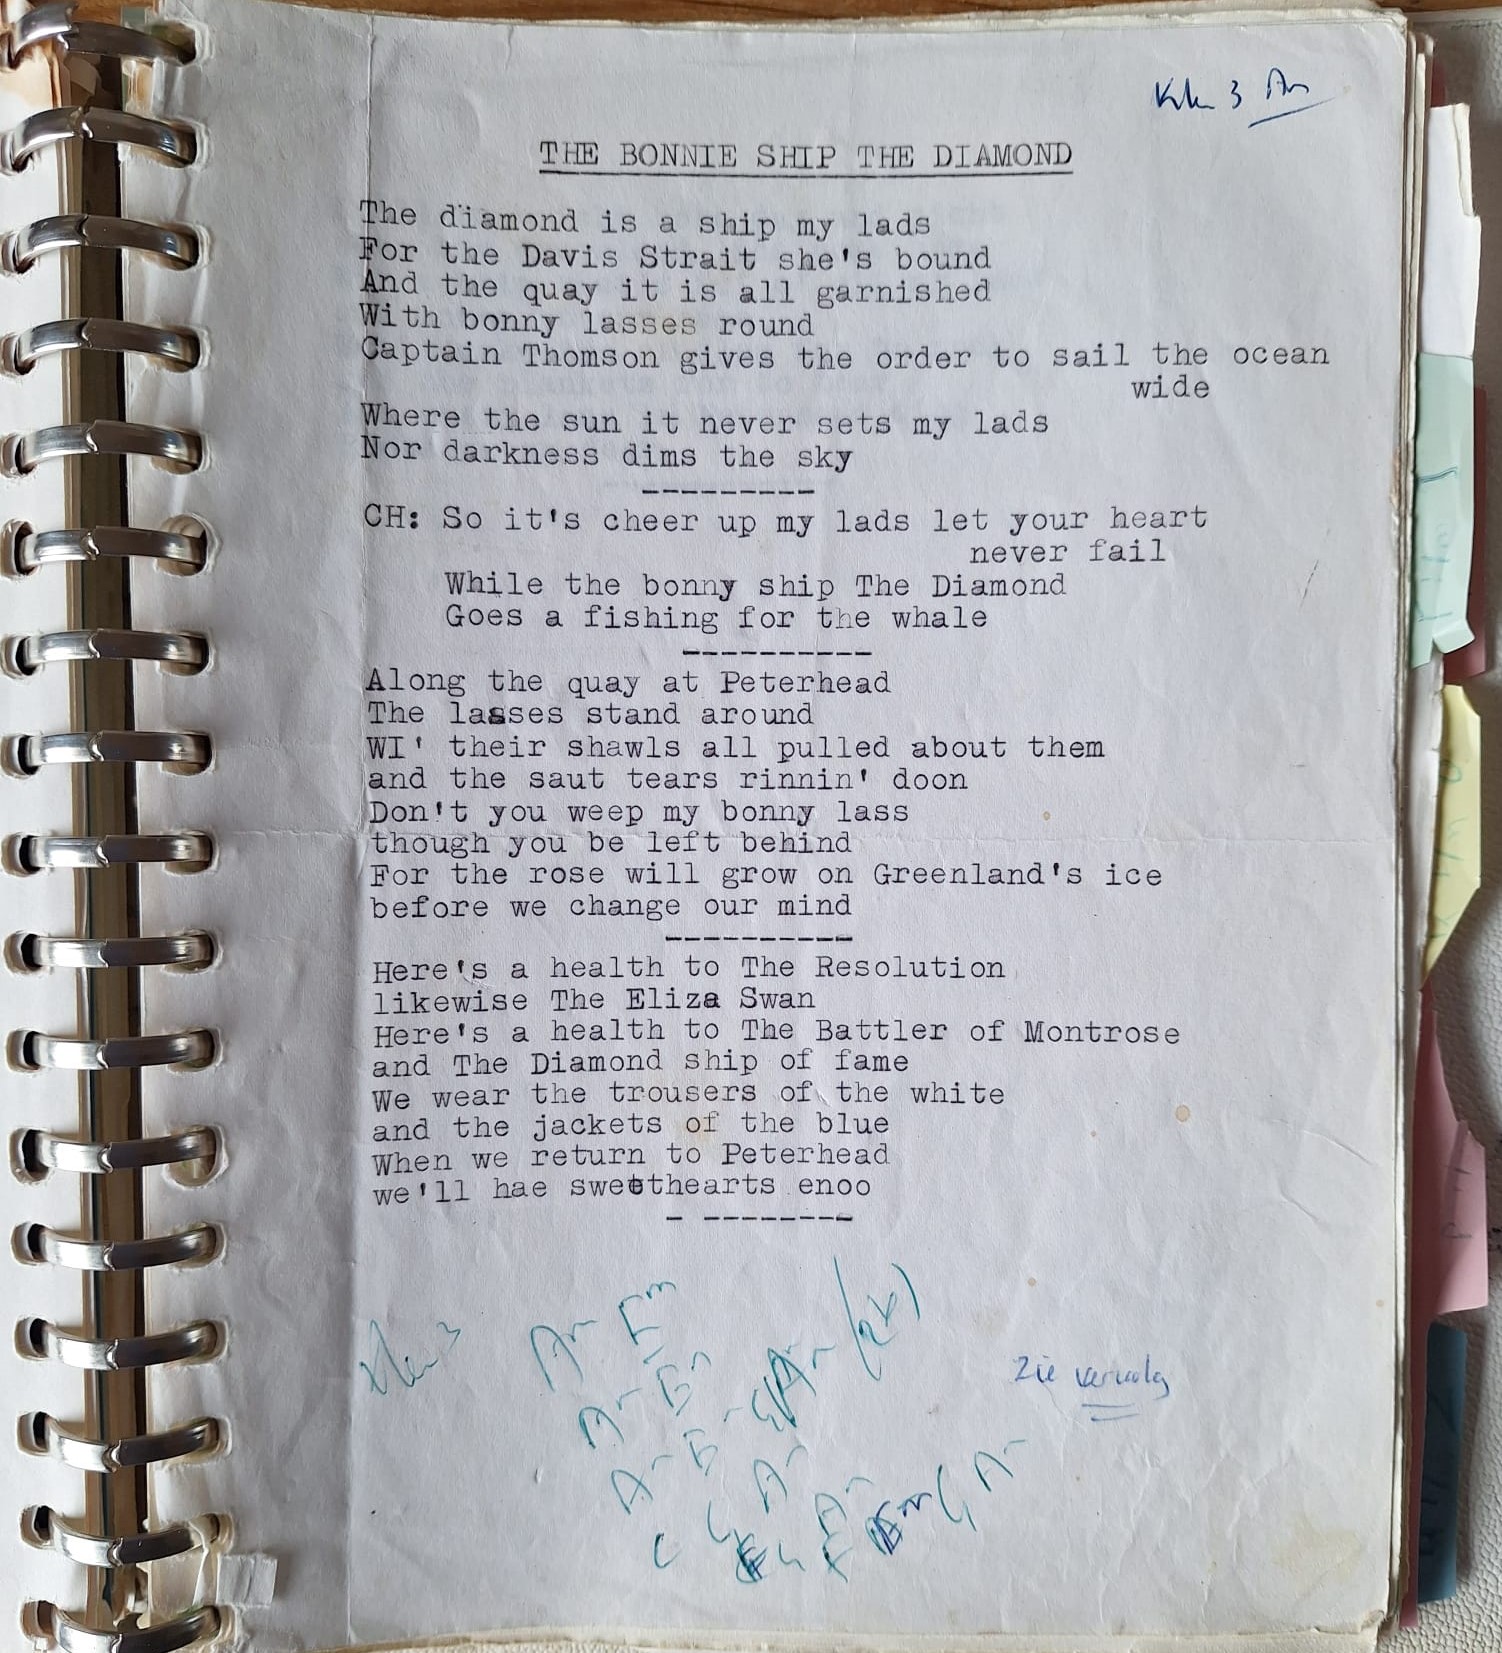 3 Am
THE BONNIE SHIP THE DIAMOND
The diamond is a ship my lads
For the Davis Strait she's bound
And the quay it is all garnished
With bonny lasses round
Captain Thomson gives the order to sail the ocean
wide
Where the sun it never sets my lads
Nor darkness dims the sky
---------
CH: So it's cheer up my lads let your heart
never fail
While the bonny ship The Diamond
Goes a fishing for the whale
----------
Along the quay at Peterhead
The lasses stand around
WI' their shawls all pulled about them
and the saut tears rinnin' doon
Don't you weep my bonny lass
though you be left behind
For the rose will grow on Greenland's ice
before we change our mind
----------
Here's a health to The Resolution
likewise The Eliza Swan
Here's a health to The Battler of Montrose
and The Diamond ship of fame
We wear the trousers of the white
and the jackets of the blue
When we return to Peterhead
we'll hae sweethearts enoo
- --------
3 Am Em
Am Em
Am E Am (2x)
Zie vervolg
C G Am
G F Am Em G Am